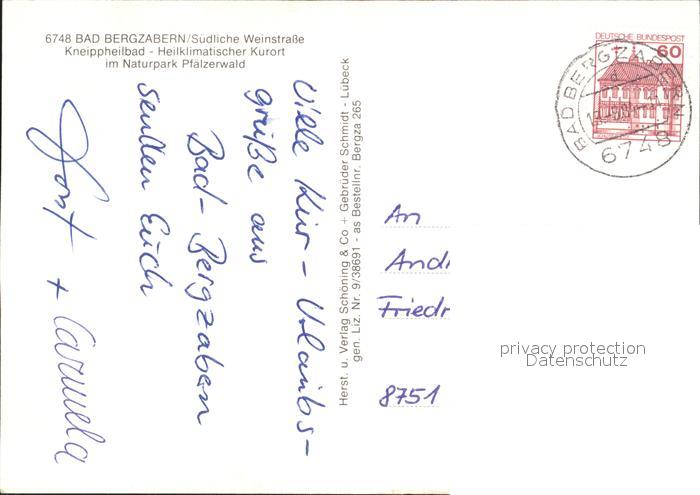 6748 BAD BERGZABERN/Südliche Weinstraße
Kneippheilbad - Heilklimatischer Kurort
im Naturpark Pfälzerwald
Viele Kur-Urlaubs-
grüße aus
Bad-Bergzabern
senden Euch
Horst + Carmela
Herst. u. Verlag Schöning & Co + Gebrüder Schmidt - Lübeck
gen. Liz. Nr. 9/38691 - as Bestellnr. Bergza 265
DEUTSCHE BUNDESPOST
60
BAD BERGZABERN
6748
An
Andr
Friedr
8751
privacy protection
Datenschutz